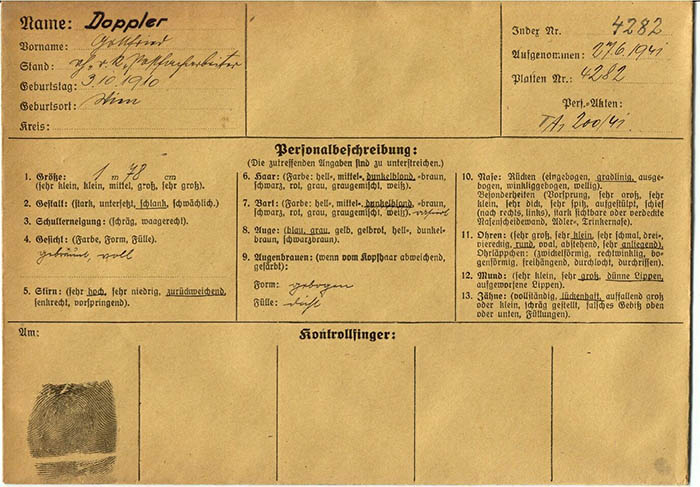 Name: Doppler
Vorname: Gottfried
Stand:
Geburtstag: 3.10.1910
Geburtsort: Wien
Kreis:
Index Nr. 4282
Aufgenommen: 27.6.1941
Platten Nr.: 4282
Pers.-Akten:
200/41
Personalbeschreibung:
(Die zutreffenden Angaben sind zu unterstreichen.)
1. Größe: 1 m 78 cm
(sehr klein, klein, mittel, groß, sehr groß).
2. Gestalt: (stark, untersetzt, schlank, schwächlich.)
3. Schulterneigung: (schräg, waagerecht).
4. Gesicht: (Farbe, Form, Fülle).
gebräunt, voll
5. Stirn: (sehr hoch, sehr niedrig, zurückweichend,
senkrecht, vorspringend).
6. Haar: (Farbe: hell-, mittel-, dunkelblond, -braun,
schwarz, rot, grau, graugemischt, weiß).
7. Bart: (Farbe: hell-, mittel-, dunkelblond, -braun,
schwarz, rot, grau, graugemischt, weiß). rasiert
8. Auge: (blau, grau, gelb, gelbrot, hell-, dunkel-
braun, schwarzbraun).
9. Augenbrauen: (wenn vom Kopfhaar abweichend,
gefärbt):
Form: gebogen
Fülle: dicht
10. Nase: Rücken (eingebogen, gradlinig, ausge-
bogen, winkliggebogen, wellig).
Besonderheiten (Vorsprung, sehr groß, sehr
klein, sehr dick, sehr spitz, aufgestülpt, schief
(nach rechts, links), stark sichtbare oder verdeckte
Nasenscheidewand, Adler-, Trinkernase).
11. Ohren: (sehr groß, sehr klein, sehr schmal, drei-,
viereckig, rund, oval, abstehend, sehr anliegend).
Ohrläppchen: (zwickelförmig, rechtwinklig, bo-
genförmig, freihängend, durchlocht, durchrissen).
12. Mund: (sehr klein, sehr groß, dünne Lippen,
aufgeworfene Lippen).
13. Zähne: (vollständig, lückenhaft, auffallend groß
oder klein, schräg gestellt, falsches Gebiß oben
oder unten, Füllungen).
Am:
Kontrollfinger: